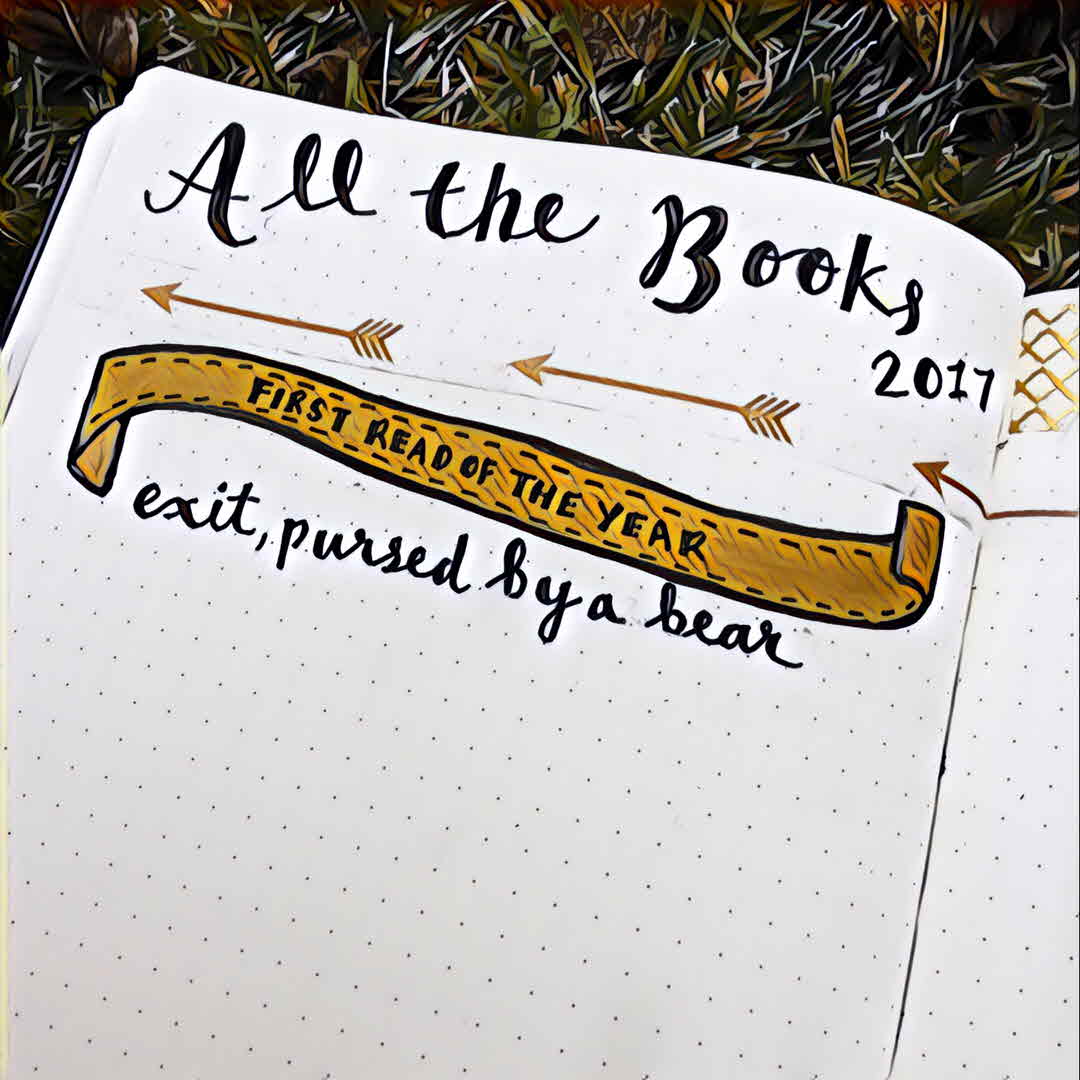 All the Books
2017
FIRST READ OF THE YEAR
exit, pursed by a bear